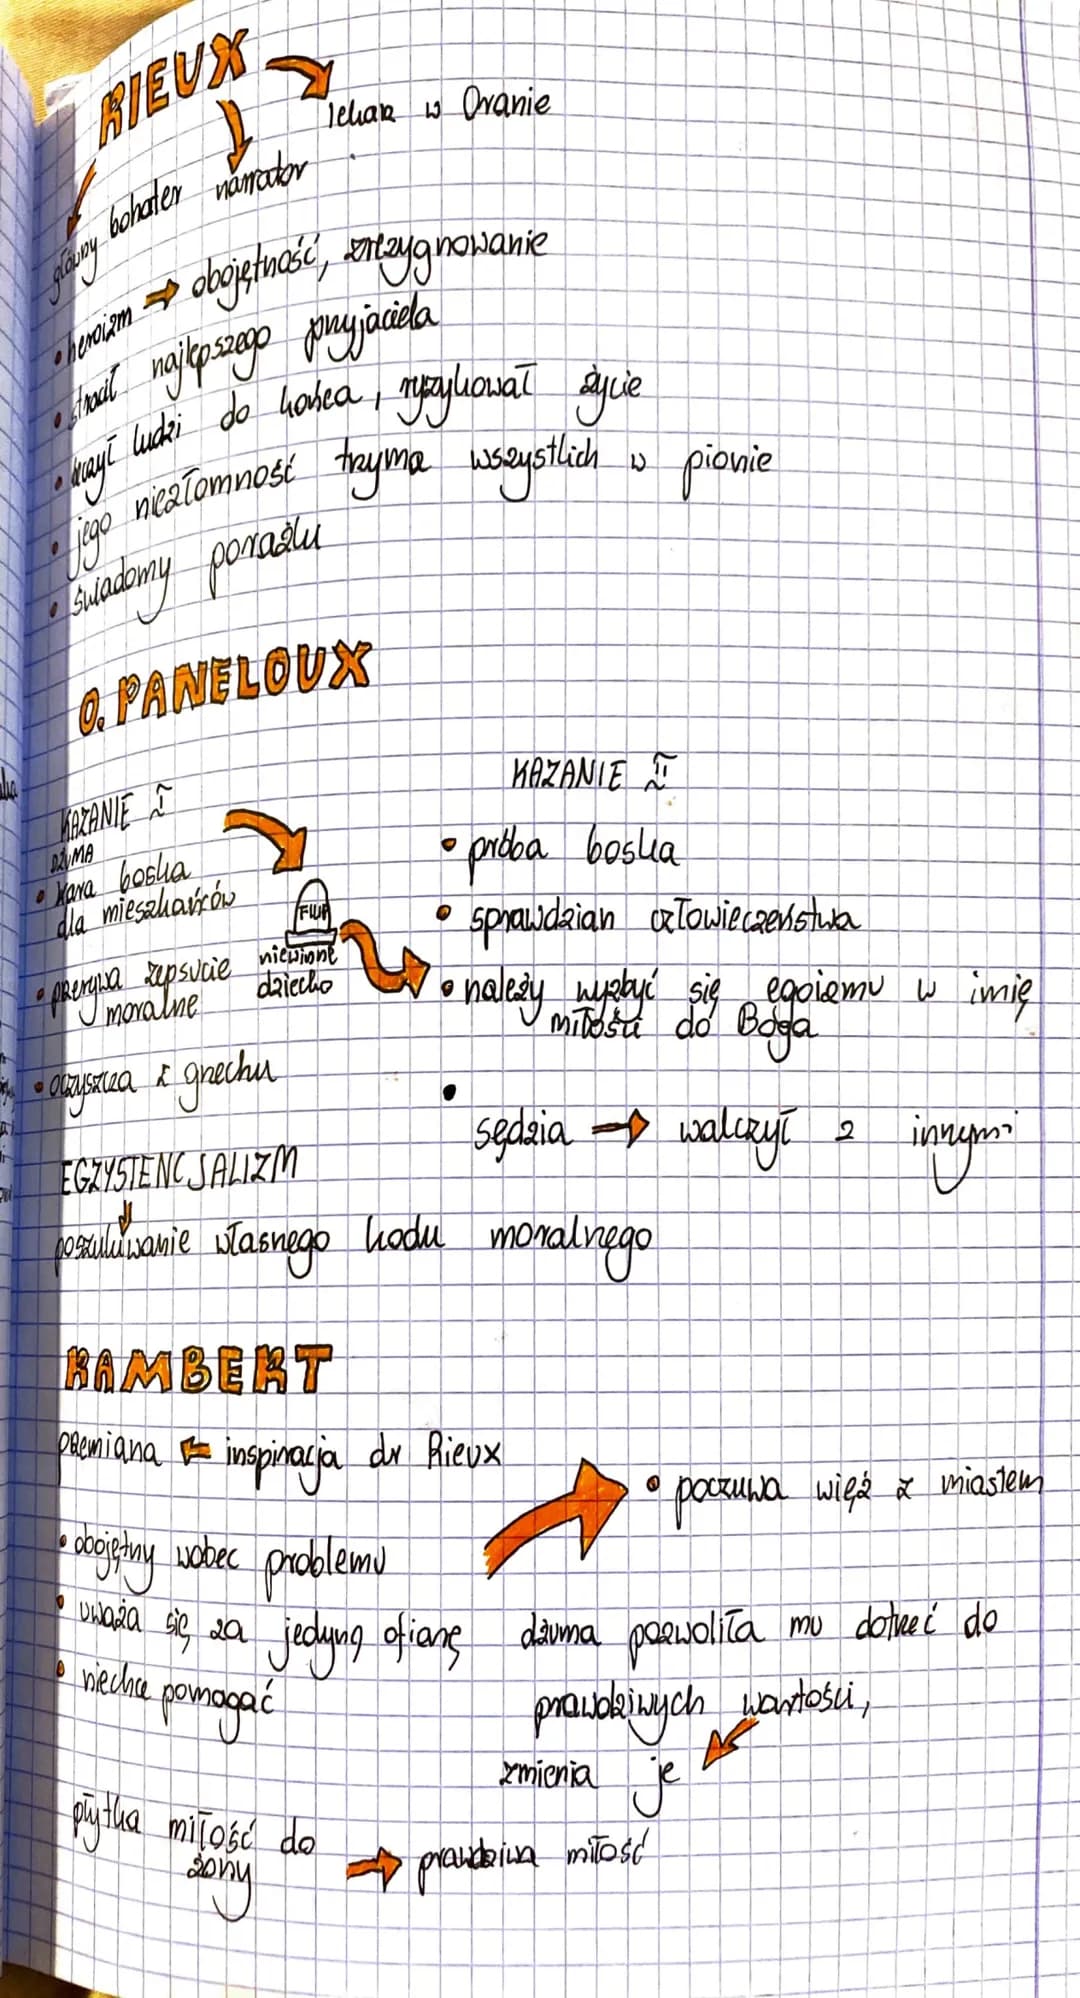 RIEUX
lekarz w Oranie
narrator
główny bohater
• heroizm → obojętność, zrezygnowanie
• stracił najlepszego przyjaciela
• leczył ludzi do końca, ryzykował życie
• jego niezłomność trzyma wszystkich w pionie
• świadomy porażki
O. PANELOUX
KAZANIE I
DŻUMA
• kara boska
dla mieszkańców
• przerywa zepsucie
moralne
• oczyszcza z grzechu
FILIP
niewinne
dziecko
KAZANIE II
• próba boska
• sprawdzian człowieczeństwa
• należy wyzbyć się egoizmu w imię
miłości do Boga
•
sędzia → walczył z innymi
EGZYSTENCJALIZM
↓
poszukiwanie własnego kodu moralnego
RAMBERT
przemiana ← inspiracja dr Rieux
• obojętny wobec problemu
• uważa się za jedyną ofiarę
• niechce pomagać
• poczuwa więź z miastem
dżuma pozwoliła mu dotrzeć do
prawdziwych wartości,
zmienia je
płytka miłość do
żony
→ prawdziwa miłość